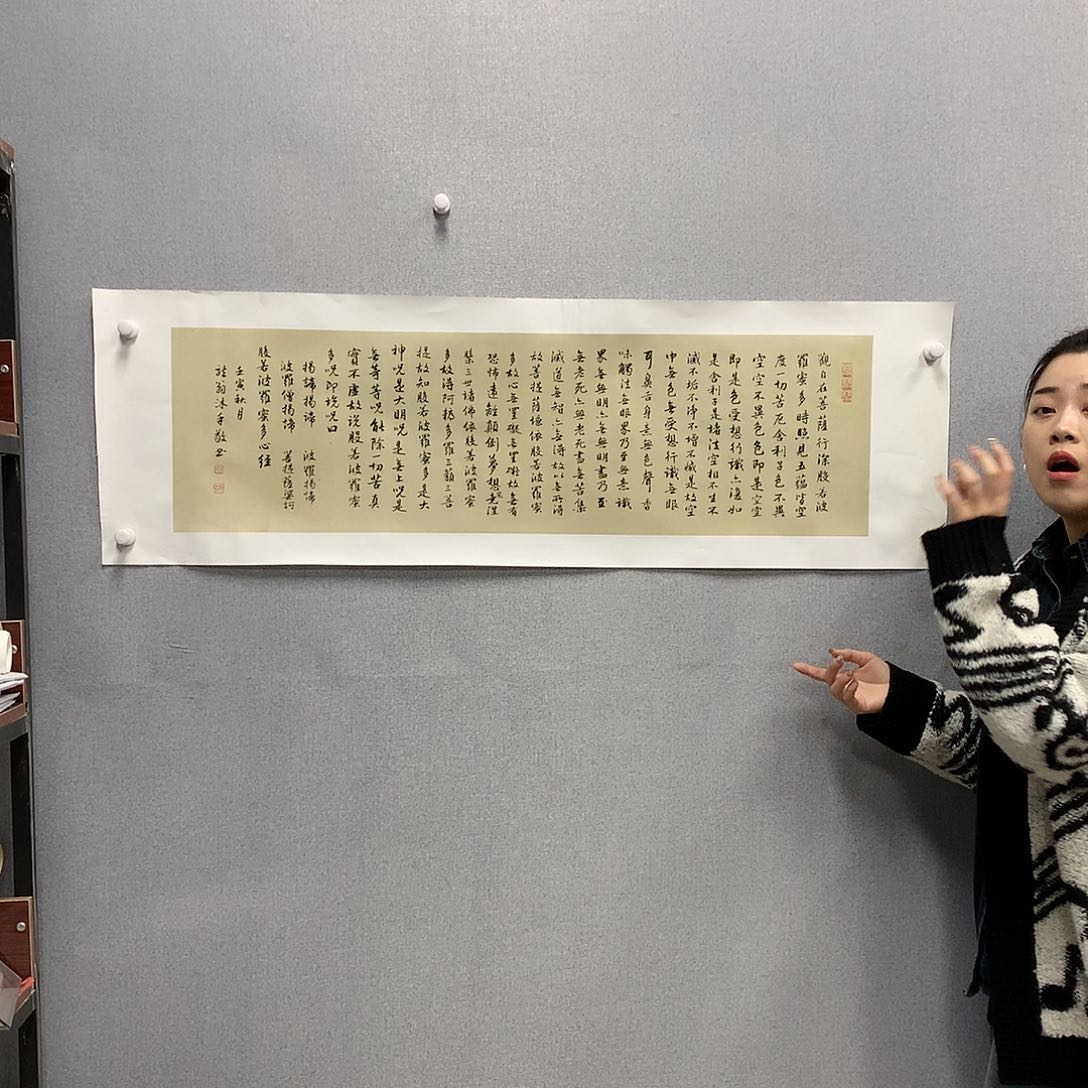 觀自在菩薩行深般若波
羅蜜多時照見五蘊皆空
度一切苦厄舍利子色不異
空空不異色色即是空空
即是色受想行識亦復如
是舍利子是諸法空相不生不
滅不垢不淨不增不減是故空
中無色無受想行識無眼
耳鼻舌身意無色聲香
味觸法無眼界乃至無意識
界無無明亦無無明盡乃至
無老死亦無老死盡無苦集
滅道無智亦無得故以無所得
故菩提薩埵依般若波羅蜜
多故心無罣礙無罣礙故無有
恐怖遠離顛倒夢想究涅
槃三世諸佛依般若波羅蜜
多故得阿耨多羅三藐三菩
提故知般若波羅蜜多是大
神呪是大明呪是無上呪是
無等等呪能除一切苦真
實不虛故說般若波羅蜜
多呪即說呪曰
揭諦揭諦 波羅揭諦
波羅僧揭諦 菩提薩婆訶
般若波羅蜜多心經
壬寅秋月
翁沐手敬書